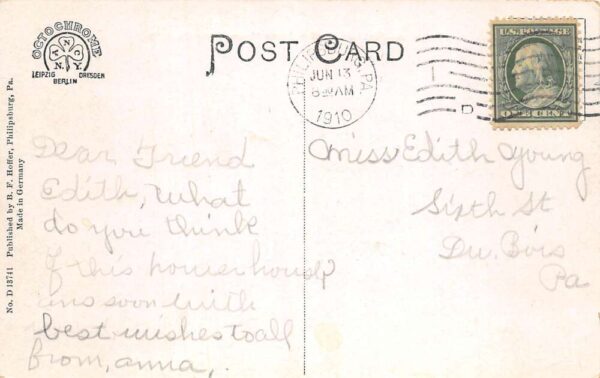 OCTOCHROME
ANC
N.Y.
LEIPZIG DRESDEN
BERLIN
POST CARD
PHILIPSBURG, PA.
JUN 13
8 30 AM
1910
D
U.S. POSTAGE
ONE CENT
No. D 13741 Published by B. F. Hoffer, Philipsburg, Pa.
Made in Germany
Dear Friend
Edith, What
do you think
of this power house?
ans soon with
best wishes to all
from, anna,.
Miss Edith Young
Sixth St
Du Bois
Pa